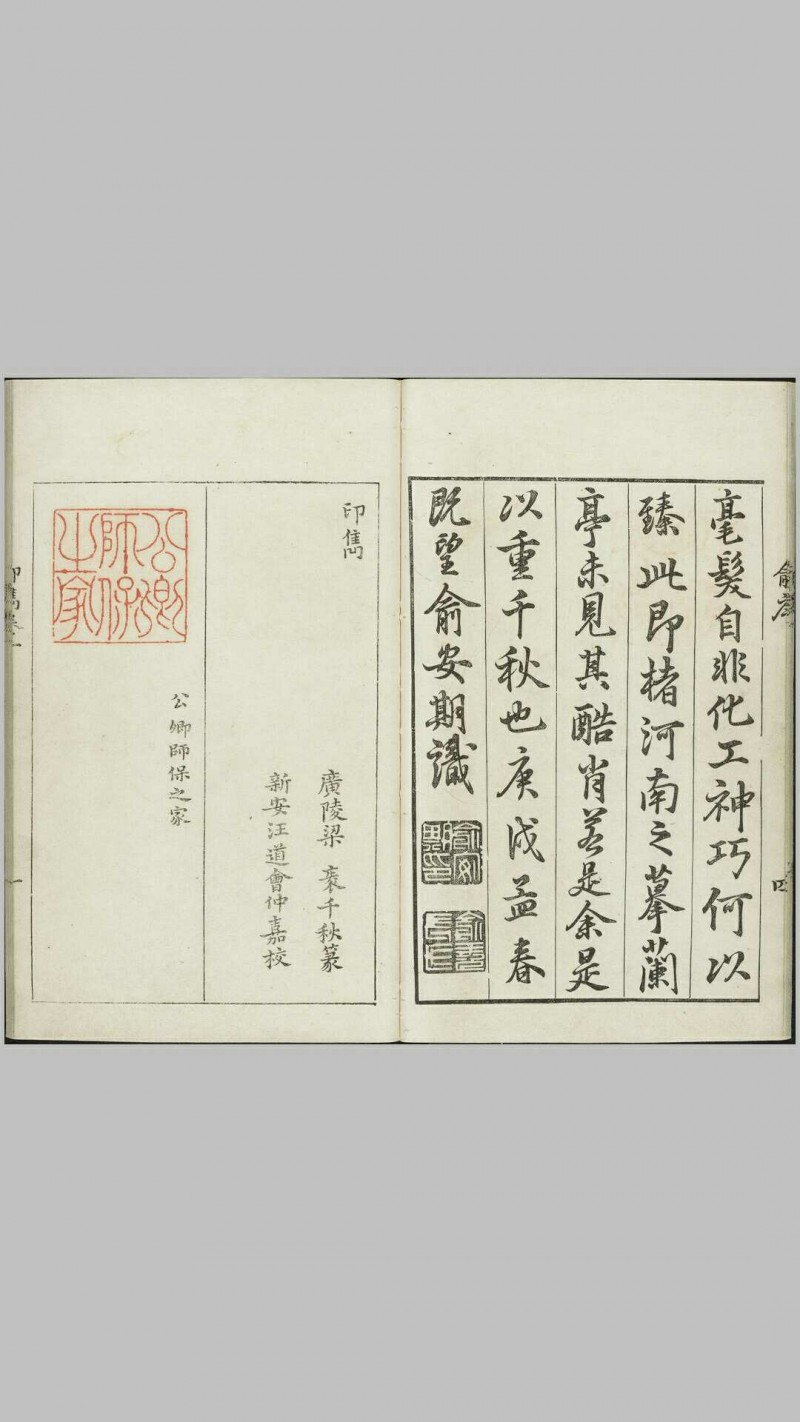 俞序
毫髮自非化工神巧何以
臻此即楮河南之摹蘭
亭未見其酷肖若是余是
以重千秋也庚戌孟春
既望俞安期識
俞安期印
四
印雋
廣陵梁袠千秋篆
新安汪道會仲嘉校
公卿師保之家
公卿師保之家
印雋卷一
一